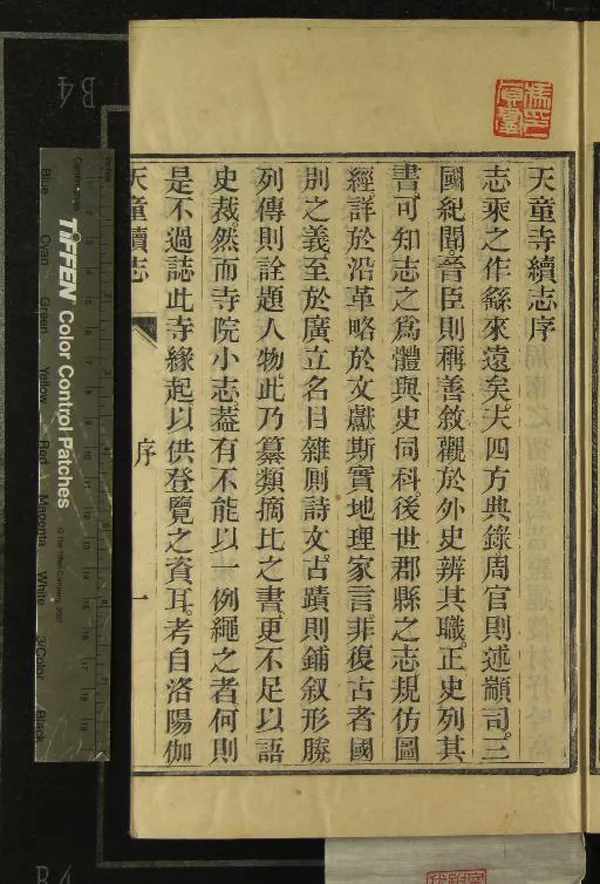 天童寺續志序
志乘之作繇來遠矣夫四方典錄周官則述顓司三
國紀聞晉臣則稱善敘觀於外史辨其職正史列其
書可知志之爲體與史同科後世郡縣之志規仿圖
經詳於沿革略於文獻斯實地理家言非復古者國
別之義至於廣立名目雜厠詩文古蹟則鋪叙形勝
列傳則詮題人物此乃纂類摘比之書更不足以語
史裁然而寺院小志葢有不能以一例繩之者何則
是不過誌此寺緣起以供登覽之資耳考自洛陽伽
天童續志
序
一
B4
TIFFEN Color Control Patches
© The Tiffen Company, 2007
Blue
Cyan
Green
Yellow
Red
Magenta
White
3/Color
Black
B4